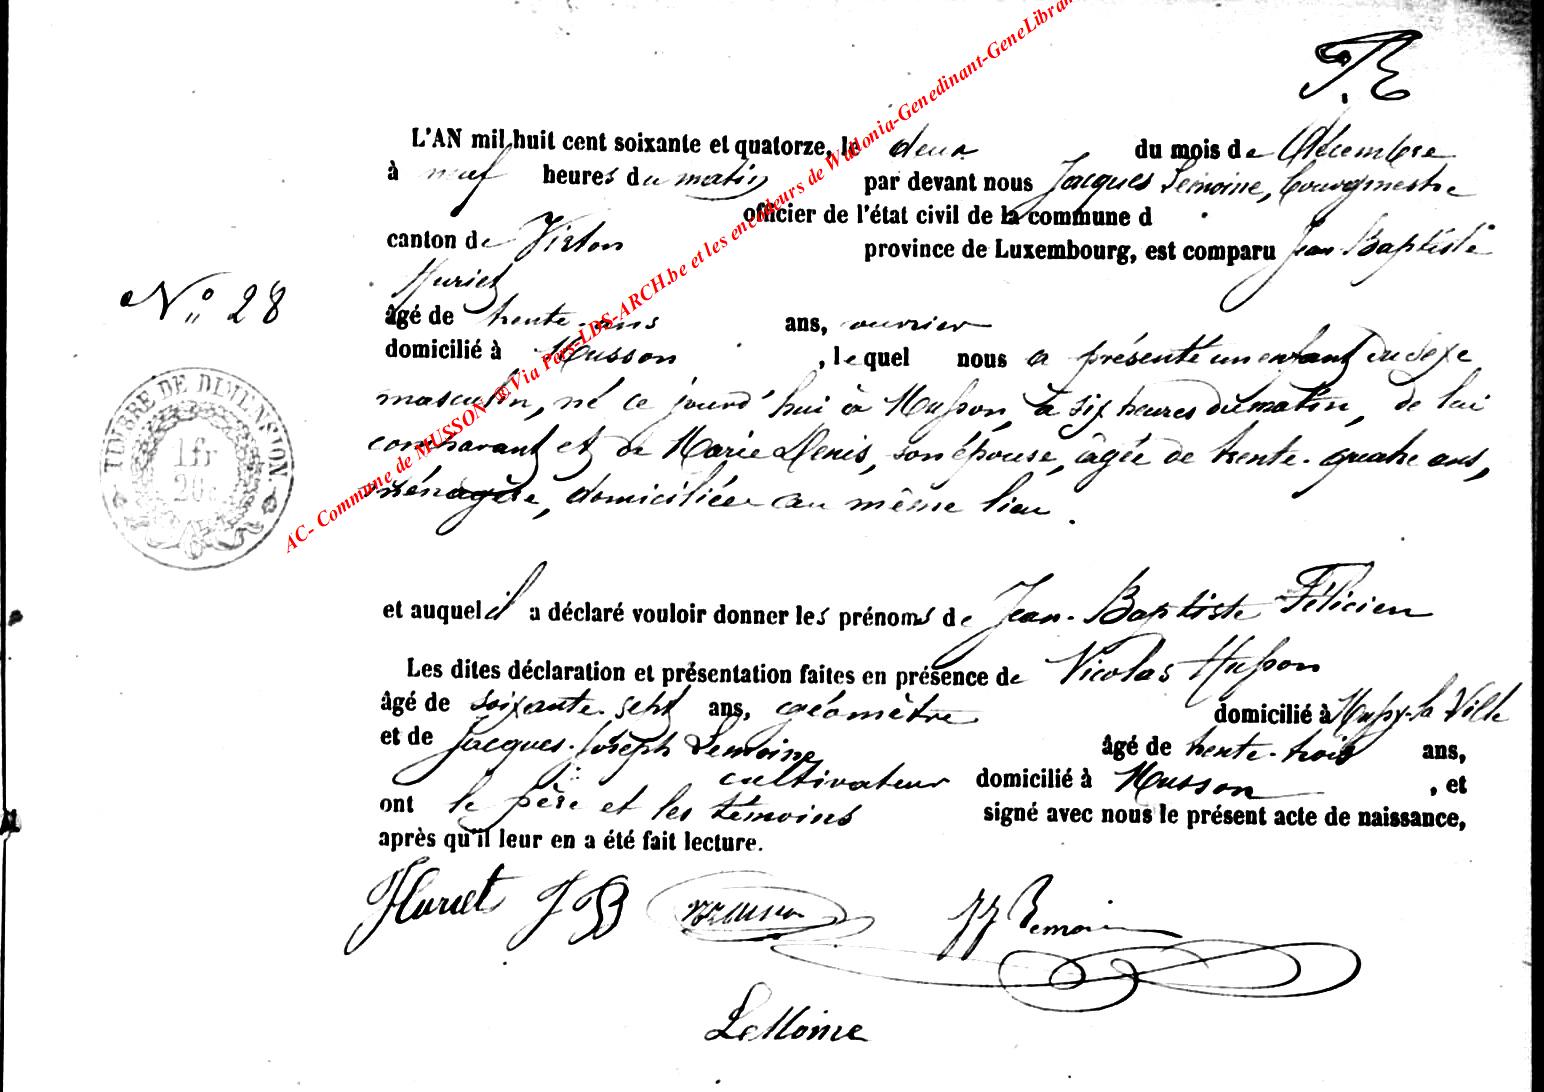 F. E
L'AN mil huit cent soixante et quatorze, le deux du mois de Décembre
à neuf heures du matin par devant nous Jacques Lemoine, bourgmestre
officier de l'état civil de la commune d
canton de Virton province de Luxembourg, est comparu Jean Baptiste
Huriet
N° 28
âgé de trente ans ans, ouvrier
domicilié à Musson, lequel nous a présenté un enfant du sexe
masculin, né ce jourd'hui à Musson, à six heures du matin, de lui
comparant et de Marie Denis, son épouse, âgée de trente-quatre ans,
ménagère, domiciliée au même lieu.
TIMBRE DE DIMENSION
1fr
20c
AC- Commune de MUSSON ® Via Pers-LDS-ARCH.be et les encodeurs de Wallonia-Genedinant-GeneLibran
et auquel il a déclaré vouloir donner les prénoms de Jean-Baptiste Félicien
Les dites déclaration et présentation faites en présence de Nicolas Husson
âgé de soixante-sept ans, géomètre domicilié à Mussy-la-Ville
et de Jacques-Joseph Lemoine âgé de trente-trois ans,
cultivateur domicilié à Musson, et
ont le père et les témoins signé avec nous le présent acte de naissance,
après qu'il leur en a été fait lecture.
Huriet J B JJ Lemoine
LeMoine